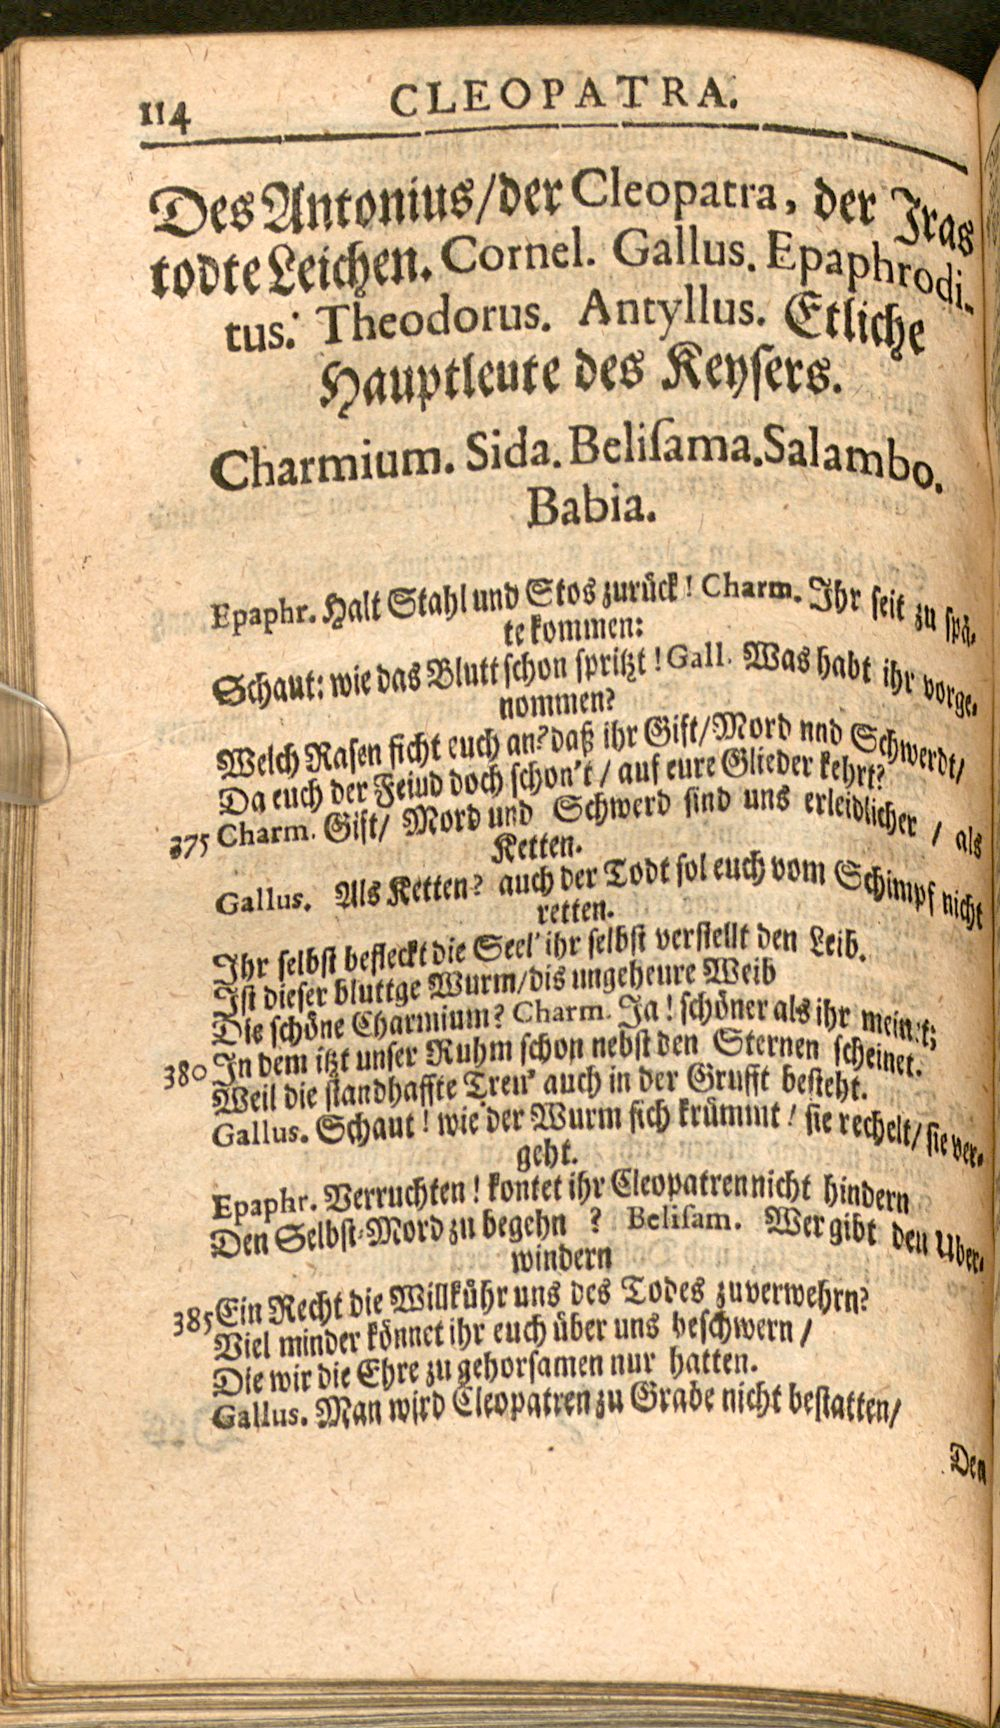 114 CLEOPATRA.
Des Antonius/der Cleopatra, der Jras
todte Leichen. Cornel. Gallus. Epaphrodi-
tus. Theodorus. Antyllus. Etliche
Hauptleute des Keysers.
Charmium. Sida. Beliſama. Salambo.
Babia.
Epaphr. Halt Stahl und Stos zurück! Charm. Jhr ſeit zu ſpä-
te kommen:
Schaut: wie das Blutt ſchon ſpritzt! Gall. Was habt ihr vorge-
nommen?
Welch Raſen ficht euch an? daß ihr Gift/Mord nnd Schwerdt/
Da euch der Feiud doch ſchon't / auf eure Glieder kehrt?
375 Charm. Gift/ Mord und Schwerd ſind uns erleidlicher / als
Ketten.
Gallus. Als Ketten? auch der Todt ſol euch vom Schimpf nicht
retten.
Jhr ſelbſt befleckt die Seel' ihr ſelbſt verſtellt den Leib.
Jſt dieſer bluttge Wurm/dis ungeheure Weib
Die ſchöne Charmium? Charm. Ja! ſchöner als ihr meinet;
380 Jn dem itzt unſer Ruhm ſchon nebſt den Sternen ſcheinet.
Weil die ſtandhaffte Treu' auch in der Grufft beſteht.
Gallus. Schaut! wie der Wurm ſich krümmt! ſie rechelt/ ſie ver-
geht.
Epaphr. Verruchten! kontet ihr Cleopatren nicht hindern
Den Selbſt-Mord zu begehn ? Beliſam. Wer gibt den Uber-
windern
385 Ein Recht die Willkühr uns des Todes zuverwehrn?
Viel minder könnet ihr euch über uns beſchwern /
Die wir die Ehre zu gehorſamen nur hatten.
Gallus. Man wird Cleopatren zu Grabe nicht beſtatten/
Den